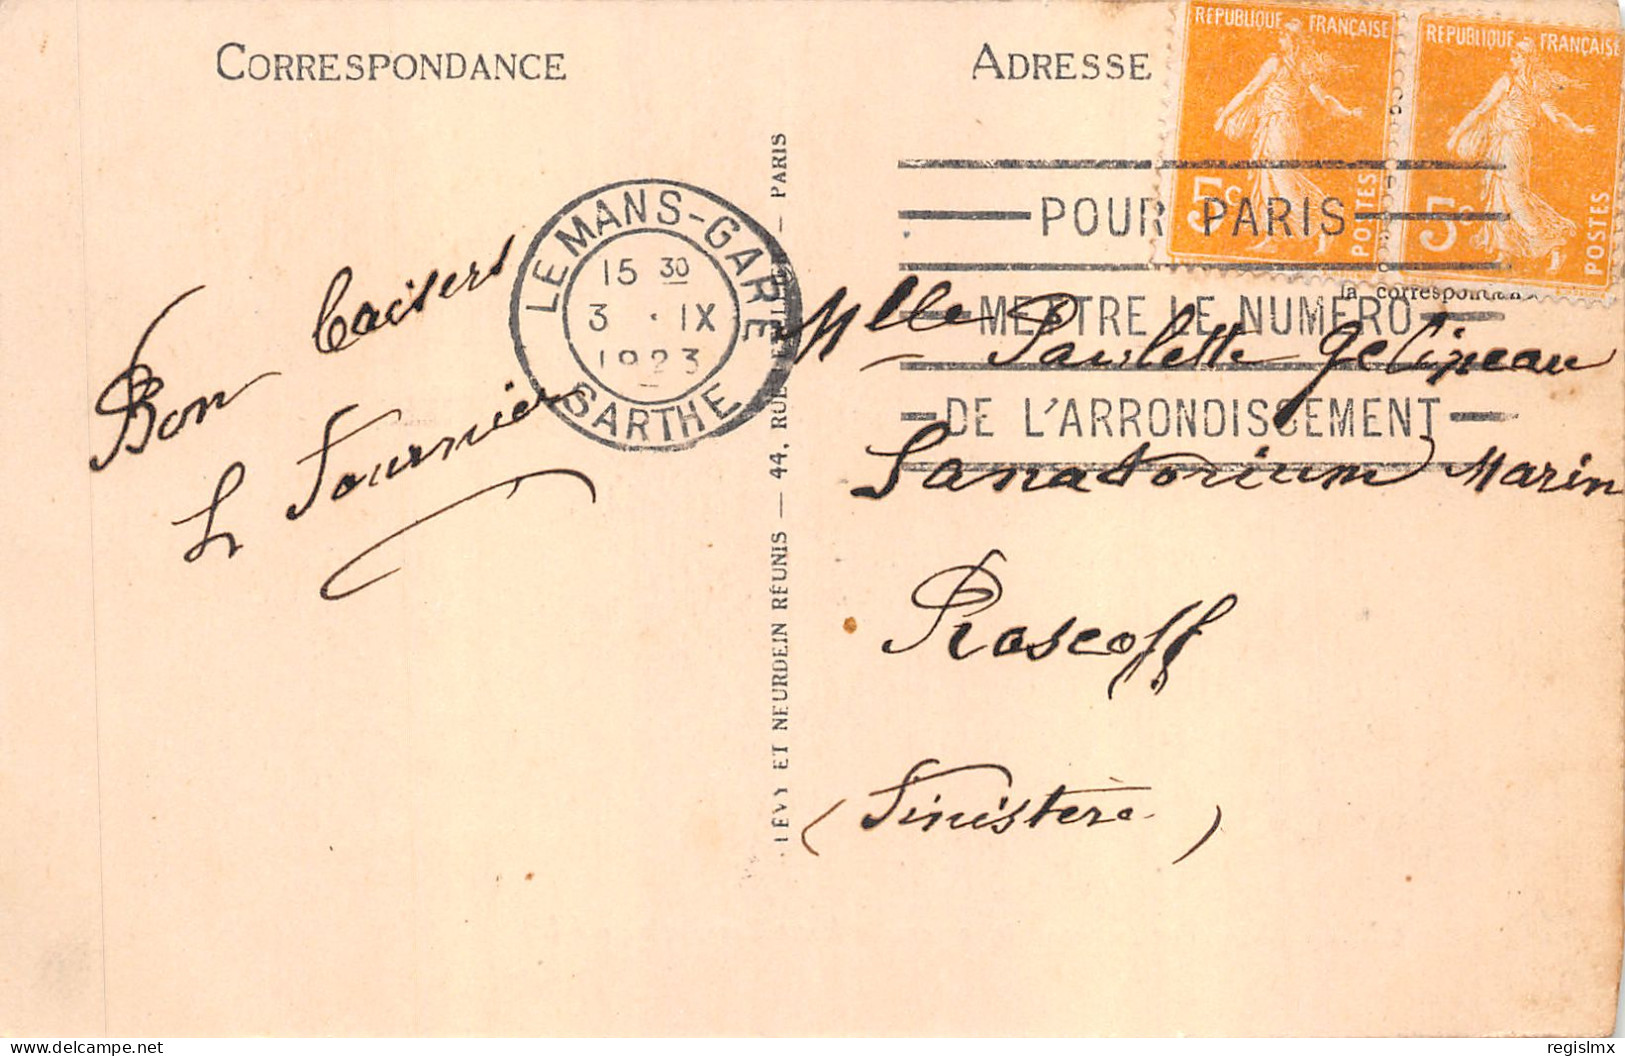 CORRESPONDANCE
ADRESSE
REPUBLIQUE FRANÇAISE
5c
POSTES
REPUBLIQUE FRANÇAISE
5c
POSTES
la correspondan
LE MANS-GARE
15 30
3 · IX
1923
SARTHE
POUR PARIS
METTRE LE NUMERO
DE L'ARRONDISSEMENT
Bon baisers
L Fournier
LÉVY ET NEURDEIN RÉUNIS — 44, RUE — PARIS
Mlle Paulette Gelineau
Sanatorium Marin
Roscoff
(Finistère)
delcampe.net
regislmx